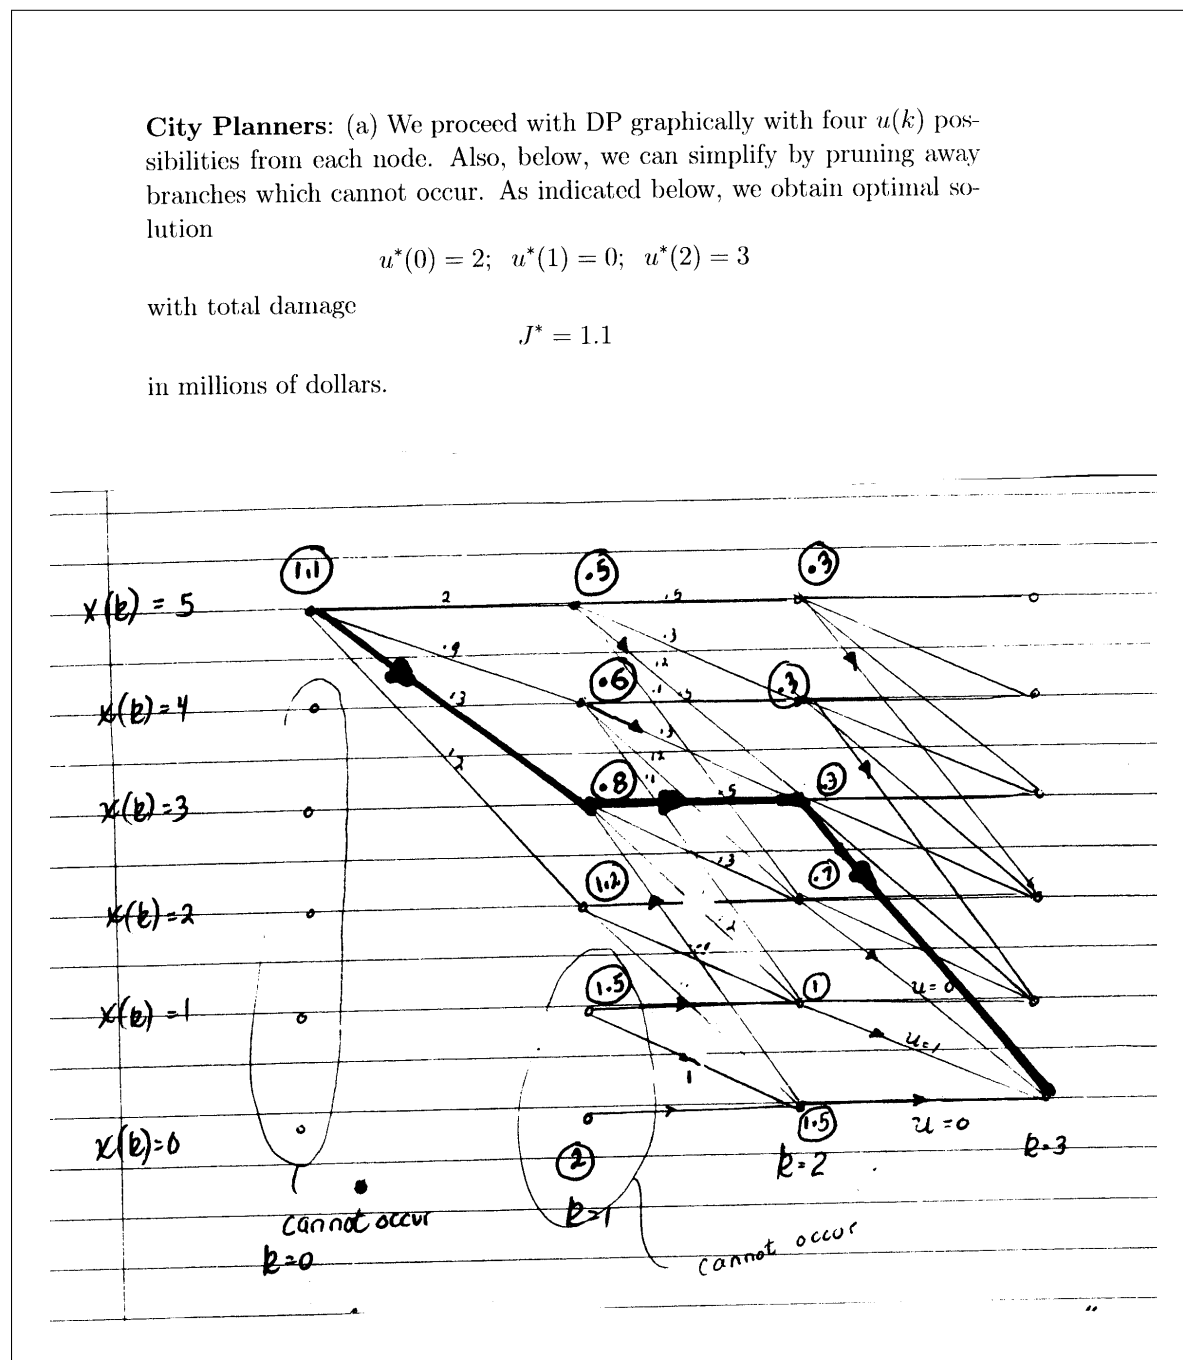 City Planners: (a) We proceed with DP graphically with four u(k) pos-
sibilities from each node. Also, below, we can simplify by pruning away
branches which cannot occur. As indicated below, we obtain optimal so-
lution
u*(0) = 2; u*(1) = 0; u*(2) = 3
with total damage
J* = 1.1
in millions of dollars.
1.1 .5 .3
x(k) = 5 2 .5
.9 .3
.2
.6 .1 .5 .3
x(k)=4 .3 .3
.2 .2
.8 .1 .5 .3
x(k)=3
1.2 .3 .7
x(k)=2
.2
1.5 1 u=0
x(k)=1
u=1
1
1.5 u=0
x(k)=0 2 k=2 k=3
cannot occur k=1
k=0 cannot occur